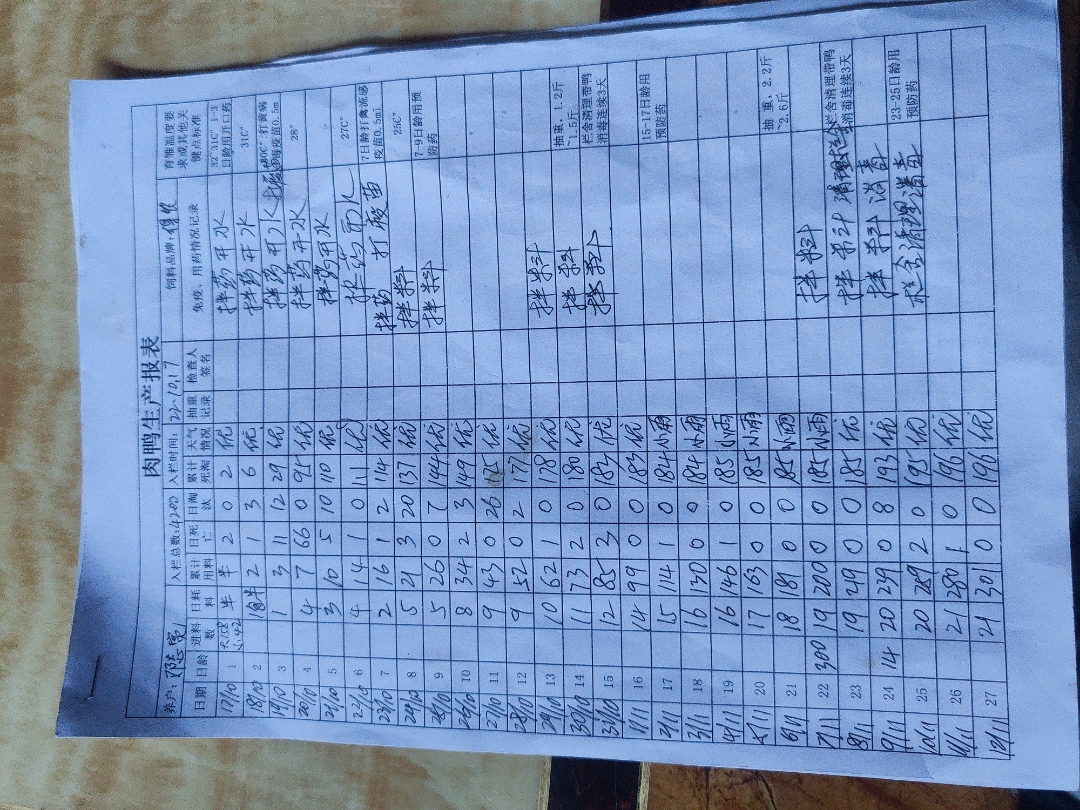 肉鸭生产报表
养户: 入栏总数:4200 入栏时间:22-10.17 饲料品牌:
日期 日龄 进料数 日耗料 累计用料 日死亡 日淘汰 累计死淘 天气情况 抽重记录 检查人签名 免疫、用药情况记录 育雏温度要求或其他关键点标准
17/10 1 大158 小42 半 半 2 0 2 优 拌药开水 32~31C° 1-3日龄用开口药
18/10 2 1包半 2 1 3 6 优 拌药开水 31C°
19/10 3 1 3 11 12 29 优 拌药开水 打黄病毒疫苗0.5m
20/10 4 4 7 66 0 95 优 拌药开水 28°
21/10 5 3 10 5 10 110 优 拌药开水
22/10 6 4 14 1 0 111 优 拌药开水 27C°
23/10 7 2 16 1 2 114 优 拌药 打 疫苗 7日龄打禽流感疫苗0.5ml
24/10 8 5 21 3 20 137 优 拌料 25C°
25/10 9 5 26 0 7 144 优 拌料 7-9日龄用预防药
26/10 10 8 34 2 3 149 优
27/10 11 9 43 0 26 175 优
28/10 12 9 52 0 2 177 优
29/10 13 10 62 1 0 178 优 拌料
30/10 14 11 73 2 0 180 优 拌料 抽重，1.2斤~1.5斤
31/10 15 12 85 3 0 183 优 拌料 栏舍清理带鸭消毒连续3天
1/11 16 14 99 0 0 183 优
2/11 17 15 114 1 0 184 小雨 15-17日龄用预防药
3/11 18 16 130 0 0 184 小雨
4/11 19 16 146 1 0 185 小雨
5/11 20 17 163 0 0 185 小雨
6/11 21 18 181 0 0 185 小雨 抽重，2.2斤~2.6斤
7/11 22 300 19 200 0 0 185 小雨 拌料
8/11 23 19 219 0 0 185 优 拌料 清理 栏舍清理带鸭消毒连续3天
9/11 24 14 20 239 0 8 193 优 拌料 消毒
10/11 25 20 259 2 0 195 优 栏舍清理消毒 23-25日龄用预防药
11/11 26 21 280 1 0 196 优
12/11 27 21 301 0 0 196 优